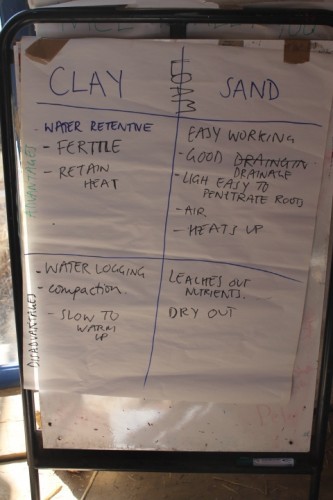 CLAY
LOAM
SAND
ADVANTAGES
- WATER RETENTIVE
- FERTILE
- RETAIN
HEAT
EASY WORKING
- GOOD DRAINGIN
DRAINAGE
- LIGH EASY TO
PENETRATE ROOTS
- AIR
- HEATS UP
DISADVANTAGES
- WATER LOGGING
- compaction.
- SLOW TO
WARM
UP
LEACHES OUT
NUTRIENTS.
DRY OUT